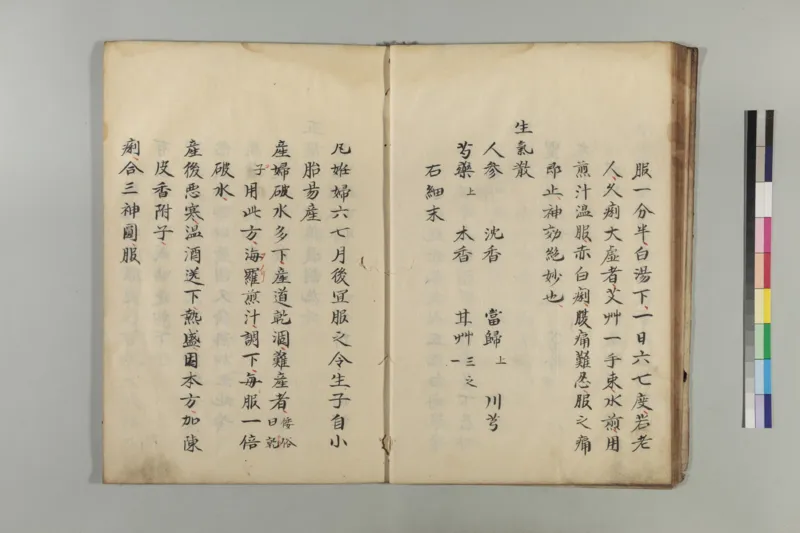 服一分半白湯下一日六七度若老
人久痢大虛者艾艸一手束水煎用
煎汁温服赤白痢腹痛難忍服之痛
即止神効絶妙也
生氣散
人參 沈香 當歸上 川芎
芍藥上 木香 甘艸三之一
右細末
凡妊婦六七月後宜服之令生子自小
胎易産
産婦破水多下産道乾涸難産者
俗曰乾
子用此方海羅煎汁調下毎服一倍
破水
産後悪寒温酒送下熱盛因本方加陳
皮香附子
痢合三神圓服